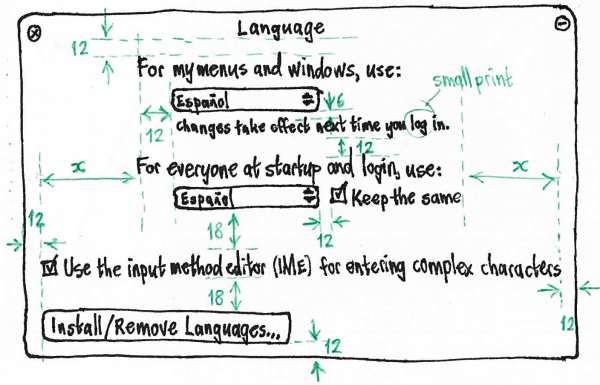 Language
12
For my menus and windows, use:
small print
Español
6
12
changes take effect next time you log in.
12
For everyone at startup and login, use:
x
x
Español
Keep the same
12
18
12
Use the input method editor (IME) for entering complex characters
18
12
Install/Remove Languages...
12